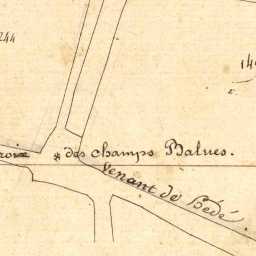 244
des champs Balues.
Venant de Bédé